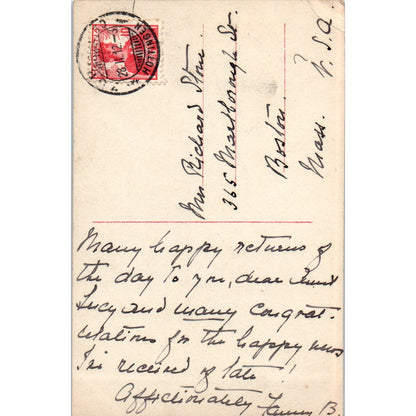 Mrs Richard Stone
365 Marlborough St.
Boston.
Mass. U.S.A.
Many happy returns of
the day to you, dear Aunt
Lucy and many congrat-
ulations for the happy news
I've received of late!
Affectionately